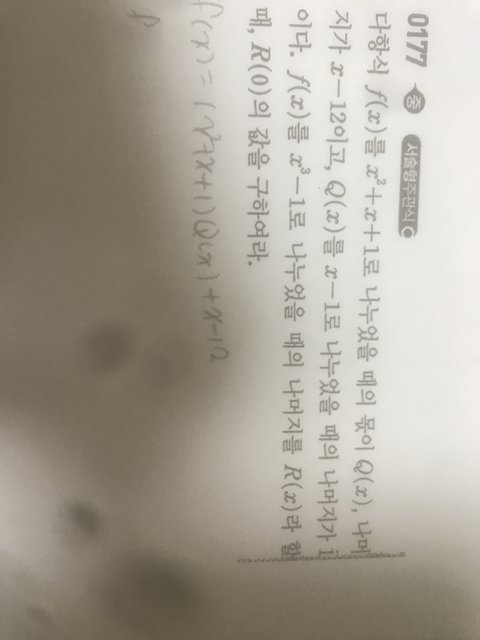 0177 중 서술형주관식
다항식 f(x)를 x²+x+1로 나누었을 때의 몫이 Q(x), 나머
지가 x-12이고, Q(x)를 x-1로 나누었을 때의 나머지가 1
이다. f(x)를 x³-1로 나누었을 때의 나머지를 R(x)라 할
때, R(0)의 값을 구하여라.
f(x) = (x²+x+1)Q(x)+x-12
f